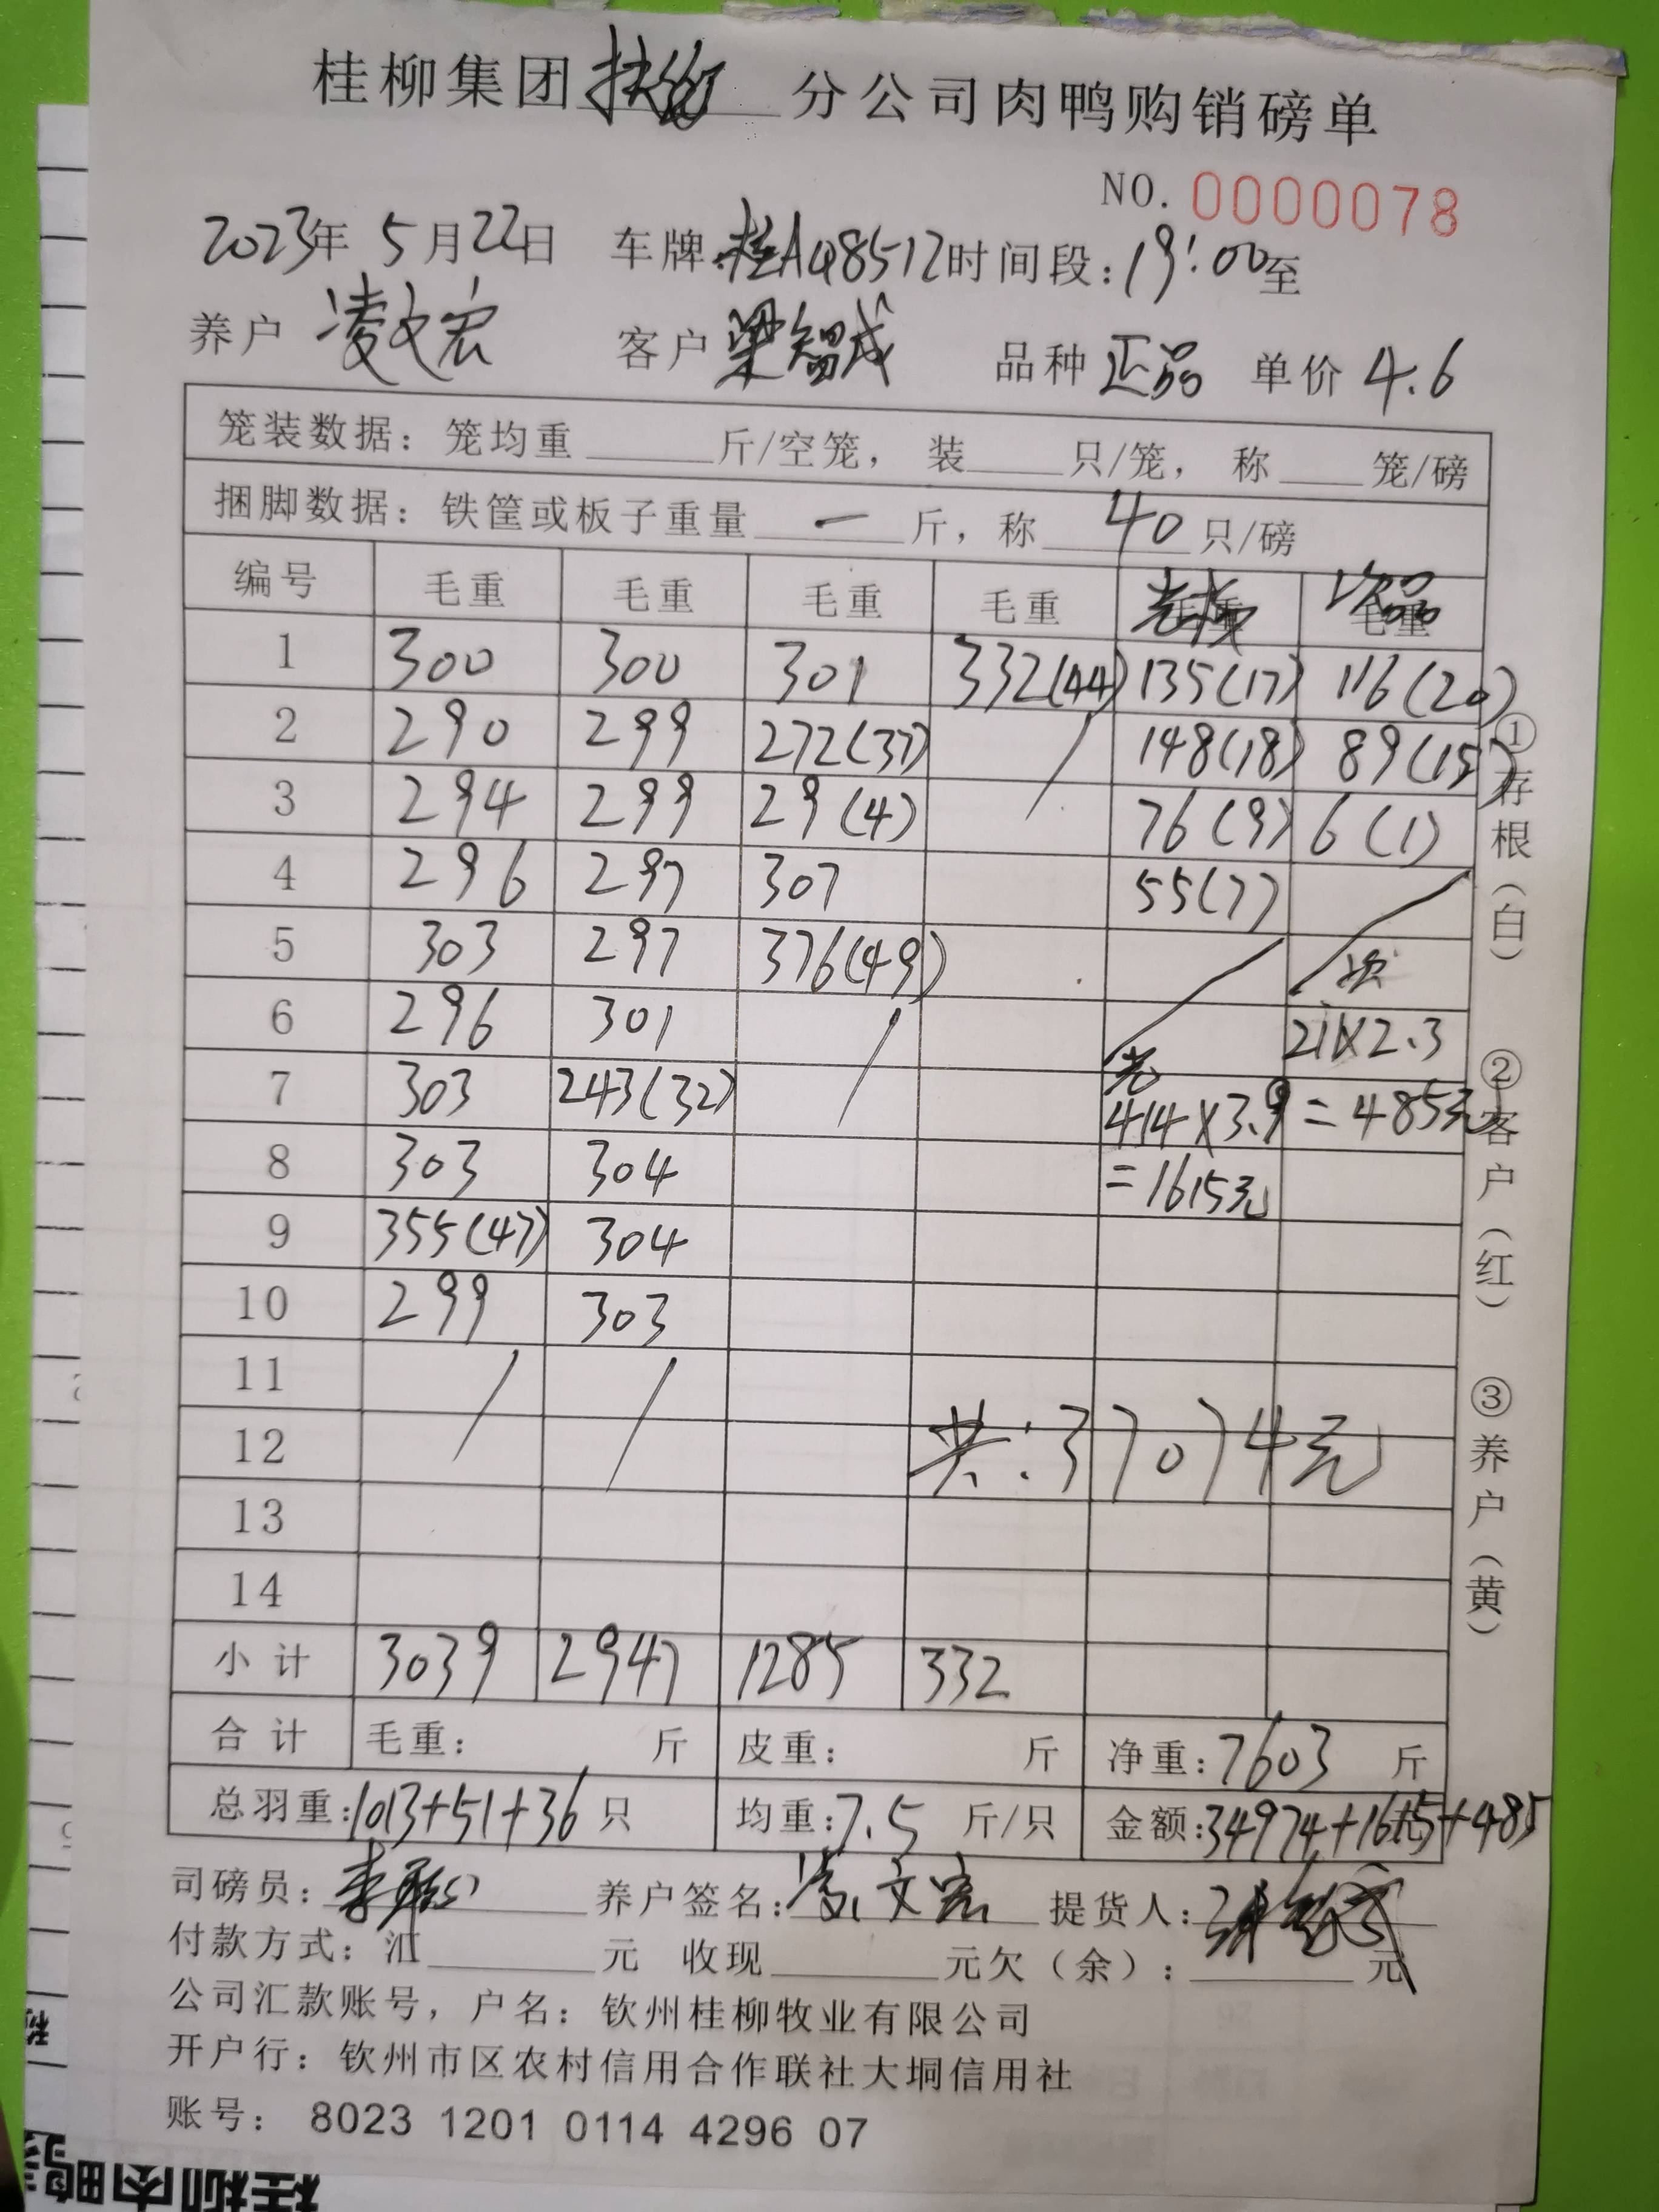 桂柳集团 分公司肉鸭购销磅单
NO. 0000078
2023年 5月22日 车牌:桂A48512 时间段:19:00至
养户 凌文宏 客户 梁智成 品种 正品 单价 4.6
笼装数据：笼均重 斤/空笼， 装 只/笼， 称 笼/磅
捆脚数据：铁筐或板子重量 一 斤，称 40 只/磅
编号 毛重 毛重 毛重 毛重 毛重 次品 毛重
1 300 300 301 332(44) 135(17) 116(20)
2 290 299 272(37) 148(18) 89(15)
3 294 299 29(4) 76(9) 6(1)
4 296 297 307 55(7)
5 303 297 376(49) 次
6 296 301 211X2.3
7 303 243(32) 光 414X3.9 =485元
8 303 304 =1615元
9 355(47) 304
10 299 303
11
12 共:37074元
13
14
小计 3039 2947 1285 332
合计 毛重: 斤 皮重: 斤 净重:7603 斤
总羽重:1013+51+36 只 均重:7.5 斤/只 金额:34974+1615+485
司磅员: 养户签名:凌文宏 提货人:
付款方式：汇 元 收现 元欠（余）: 元
公司汇款账号，户名：钦州桂柳牧业有限公司
开户行：钦州市区农村信用合作联社大垌信用社
账号： 8023 1201 0114 4296 07
①存根（白） ②客户（红） ③养户（黄）
桂柳肉鸭